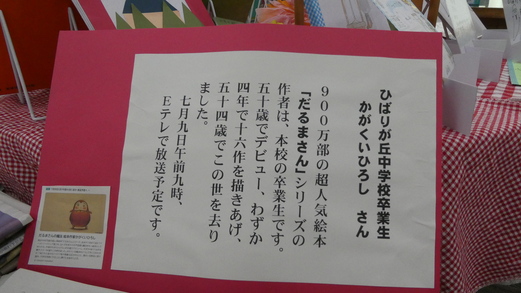 ひばりが丘中学校卒業生
かがくいひろし さん
900万部の超人気絵本
「だるまさん」シリーズの
作者は、本校の卒業生です。
五十歳でデビュー、わずか
四年で十六作を描きあげ、
五十四歳でこの世を去り
ました。
七月九日午前九時、
Eテレで放送予定です。